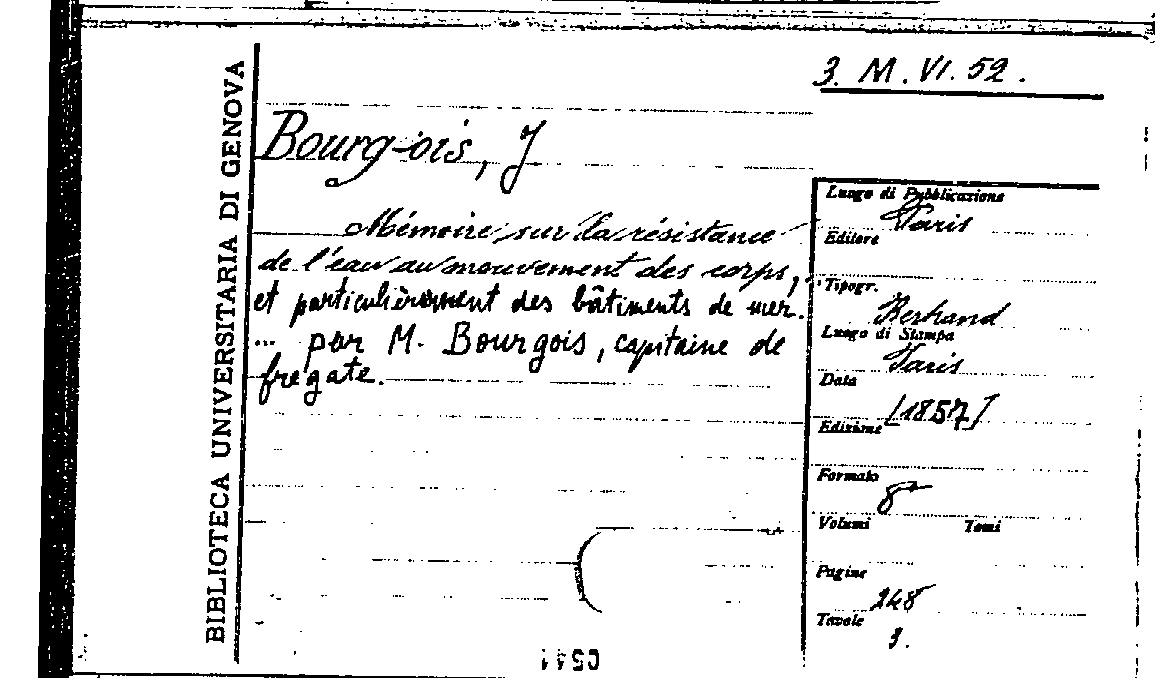 3. M. VI. 52.
BIBLIOTECA UNIVERSITARIA DI GENOVA
Bourgois, J
Mémoire sur la résistance
de l'eau au mouvement des corps,
et particulièrement des bâtiments de mer.
... par M. Bourgois, capitaine de
frégate.
Luogo di Pubblicazione
Paris
Editore
Tipogr.
Bertrand
Luogo di Stampa
Paris
Data
[1857]
Edizione
Formato
8°
Volumi Tomi
Pagine
248
Tavole
3.